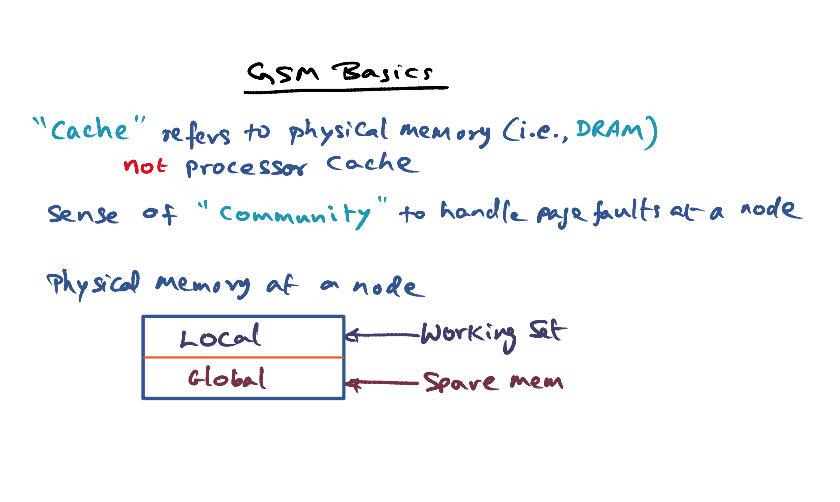 GSM Basics
"Cache" refers to physical memory (i.e., DRAM)
not processor cache
Sense of "community" to handle page faults at a node
Physical memory at a node
Local
Working set
Global
Spare mem